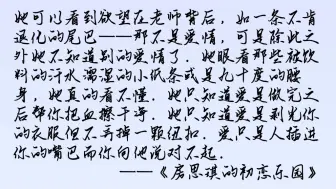 她可以看到欲望在老师背后，如一条不肯
退化的尾巴——那不是爱情，可是除此之
外她不知道别的爱情了．她眼看那些被饮
料的汗水濡湿的小纸条或是九十度的腰
身，她真的看不懂．她只知道爱是做完之
后帮你把血擦干净．她只知道爱是剥光你
的衣服但不弄掉一颗纽扣．爱只是人插进
你的嘴巴而你向他说对不起．
——《房思琪的初恋乐园》